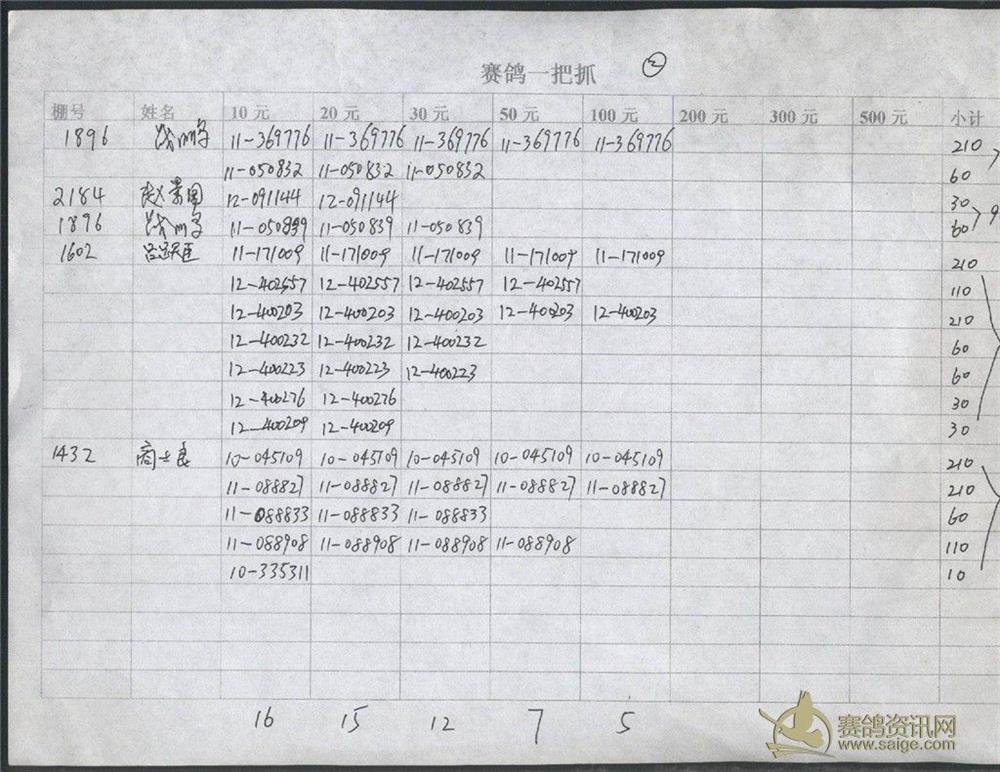 赛鸽一把抓 ②
棚号 姓名 10 元 20 元 30 元 50 元 100 元 200 元 300 元 500 元 小计
1896 11-369776 11-369776 11-369776 11-369776 11-369776 210
11-050832 11-050832 11-050832 60
2184 12-091144 12-091144 30
1896 11-050839 11-050839 11-050839 60
1602 11-171009 11-171009 11-171009 11-171009 11-171009 210
12-402557 12-402557 12-402557 12-402557 110
12-400203 12-400203 12-400203 12-400203 12-400203 210
12-400232 12-400232 12-400232 60
12-400223 12-400223 12-400223 60
12-400276 12-400276 30
12-400209 12-400209 30
1432 商士良 10-045109 10-045109 10-045109 10-045109 10-045109 210
11-088827 11-088827 11-088827 11-088827 11-088827 210
11-088833 11-088833 11-088833 60
11-088908 11-088908 11-088908 11-088908 110
10-335311 10
16 15 12 7 5
赛鸽资讯网
www.saige.com